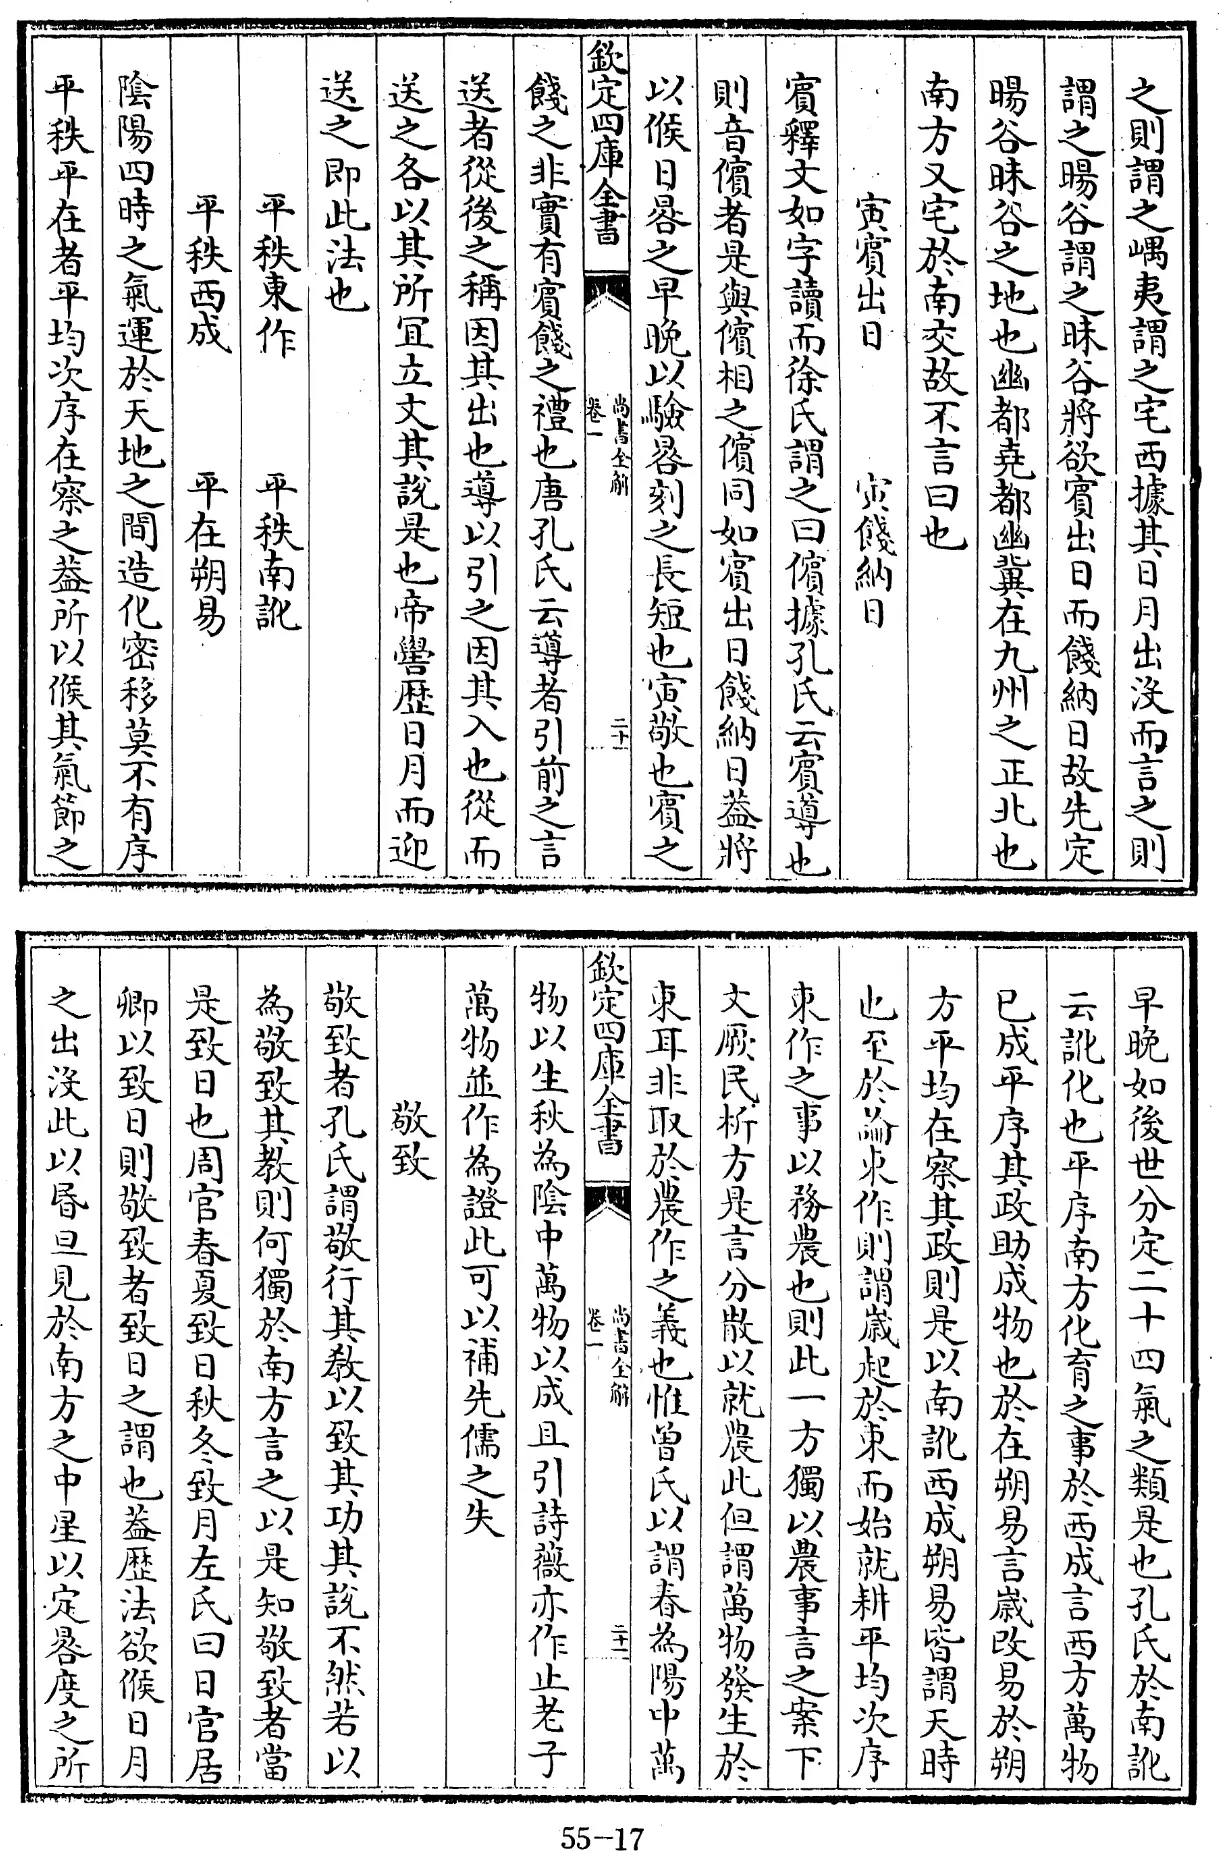 之則謂之嵎夷謂之宅西據其日月出沒而言之則
謂之暘谷謂之昧谷將欲賓出日而餞納日故先定
暘谷昧谷之地也幽都堯都幽冀在九州之正北也
南方又宅於南交故不言曰也
寅賓出日　寅餞納日
賓釋文如字讀而徐氏謂之曰儐據孔氏云賓導也
則音儐者是與儐相之儐同如賓出日餞納日蓋將
以候日晷之早晚以驗晷刻之長短也寅敬也賓之
欽定四庫全書
尚書全解
卷一
二十
餞之非實有賓餞之禮也唐孔氏云導者引前之言
送者從後之稱因其出也導以引之因其入也從而
送之各以其所宜立文其說是也帝嚳歷日月而迎
送之即此法也
平秩東作　平秩南訛
平秩西成　平在朔易
陰陽四時之氣運於天地之間造化密移莫不有序
平秩平在者平均次序在察之蓋所以候其氣節之
早晚如後世分定二十四氣之類是也孔氏於南訛
云訛化也平序南方化育之事於西成言西方萬物
已成平序其政助成物也於在朔易言歲改易於朔
方平均在察其政則是以南訛西成朔易皆謂天時
也至於論東作則謂歲起於東而始就耕平均次序
東作之事以務農也則此一方獨以農事言之案下
文厥民析方是言分散以就農此但謂萬物發生於
東耳非取於農作之義也惟曾氏以謂春為陽中萬
欽定四庫全書
尚書全解
卷一
二十一
物以生秋為陰中萬物以成且引詩薇亦作止老子
萬物並作為證此可以補先儒之失
敬致
敬致者孔氏謂敬行其教以致其功其說不然若以
為敬致其教則何獨於南方言之以是知敬致者當
是致日也周官春夏致日秋冬致月左氏曰日官居
卿以致日則敬致者致日之謂也蓋歷法欲候日月
之出沒此以昏旦見於南方之中星以定晷度之所
55-17